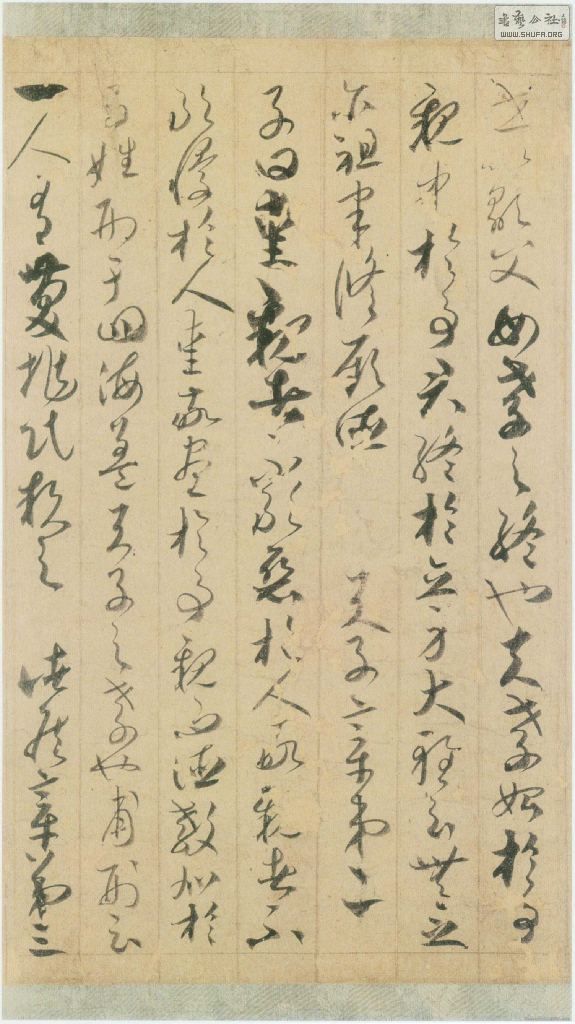 世以顯父母孝之終也夫孝始於事
親中於事君終於立身大雅云無念
尔祖聿脩厥德　天子章第二
子曰愛親者不敢惡於人敬親者不
敢慢於人愛敬盡於事親而德教加於
百姓刑于四海蓋天子之孝也甫刑云
一人有慶兆民賴之　諸侯章第三
書藝公社
WWW.SHUFA.ORG